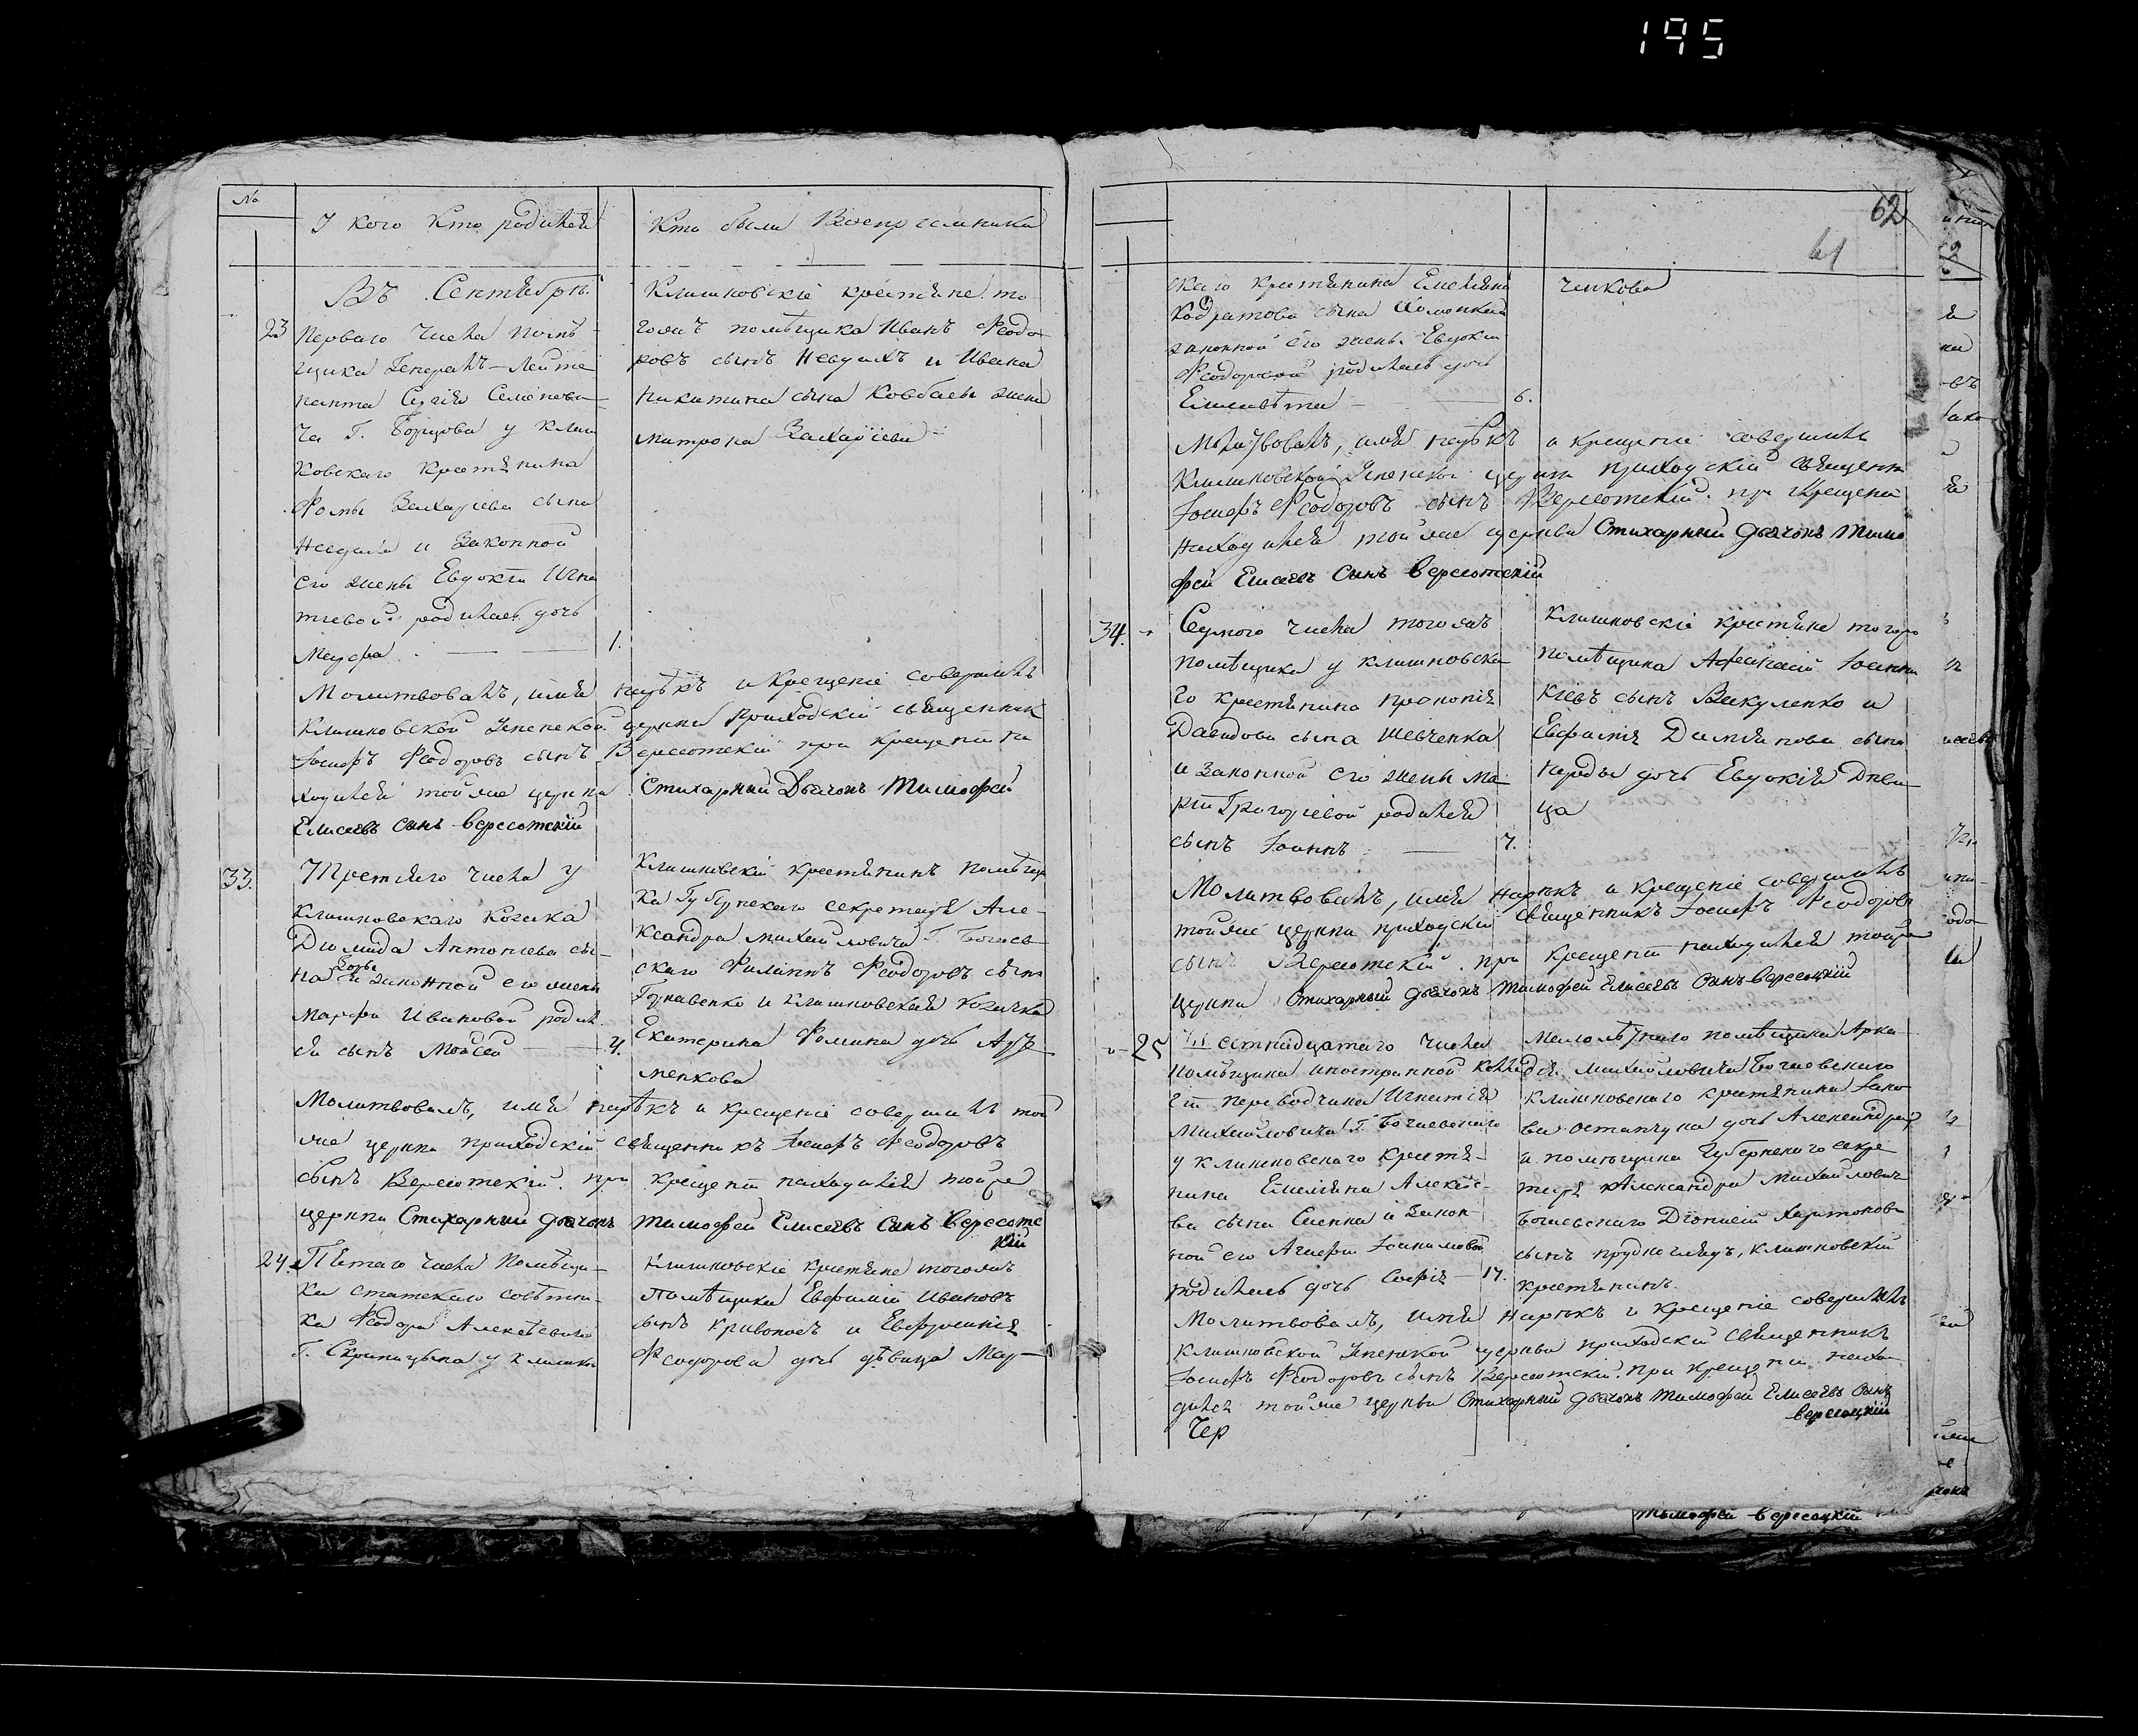 195
№
У кого Кто родился
Кто были Воспріемники
Въ Сентябрѣ
23 Перваго числа помѣ-
щика Генералъ-Лейте
нанта Сергія Семенови-
ча Г. Борщова у Клиш
ковскаго крестянина
Фомы Захаріева сына
и Законной
его жены Евдокіи Игна
тіевой родилась дочь
Марфа 1.
Клишковскіе крестяне то
гожъ помѣщика Иванъ Феодо-
ровъ сынъ и Ивана
Никитина сына Ковбасы жена
Матрона Захаріева
Молитвовалъ, имя нарѣкъ и Крещеніе совершилъ
Клишковской Успенской церкви приходскій священник
Іосифъ Феодоровъ сынъ Вересотскій при крещеніи на
ходился тойже церкви Стихарный Дьячокъ Тимофей
Елисеевъ сынъ вересотскій
33. Третяго числа у
Клишковскаго Козака
Діомида Антоніева сы-
на Зозы и законной его жены
Марфы Ивановой родил
ся сынъ Моисей 4.
Клишковскій крестянинъ помѣщи
ка Губернскаго секретаря Але-
ксандра Михайловича Г. Богаев-
скаго Филиппъ Феодоровъ сынъ
и клишковская козачка
Екатерина Фомина дочь
менкова
Молитвовалъ, имя нарѣкъ и крещеніе совершилъ той
же церкви приходскій священникъ Іосифъ Феодоровъ
сынъ Вересотскій при крещеніи находился тойже
церкви Стихарный дьячокъ Тимофей Елисеевъ Сынъ Вересотс
кій
24. Пятаго числа Помѣщи-
ка статскаго совѣтни-
ка Феодора Алексѣевича
Г. Скрипицына у клишков
Клишковскіе крестяне тогожъ
Помѣщика Евфимій Ивановъ
сынъ кривоносъ и Евфросинія
Феодорова дочь дѣвица Мар-
62
61
скаго крестянина Емеліяна
Кодратова сына
законной его жены Евдокіи
Феодоровой родилась дочь
Елисавета 6.
ченкова
Молитвовалъ, имя нарѣкъ и крещеніе совершилъ
Клишковской Успенской церкви приходскій священн
Іосифъ Феодоровъ сынъ Вересотскій при Крещеніи
находился тойже церкви Стихарный дьячокъ Тимо
фей Елисеевъ Сынъ вересотскій
34. Седмого числа тогожъ
помѣщика у клишковска
го крестянина Прокопія
Давидова сына Шевченка
и законной его жены Ма
ріи Григоріевой родился
сынъ Іоаннъ 7.
Клишковскіе крестяне тогоже
помѣщика Афанасій Іоанни
кіевъ сынъ Викуленко и
Евфимія Даміянова сына
дочь Евдокія Дѣви
ца
Молитвовалъ, имя нарѣкъ и крещеніе совершилъ
тойже церкви приходскій священникъ Іосифъ Феодоровъ
сынъ Вересотскій при крещеніи находился тойже
церкви Стихарный дьячокъ Тимофей Елисеевъ Сынъ вересоцкій
25 Шестнадцатаго числа
помѣщика иностранной коллѣ
гіи переводчика Игнатія
Михайловича Г. Богаевскаго
у клишковскаго крестя-
нина Емеліяна Алексѣе-
ва сына и Закон-
ной его Агафіи Іоакимовой
родилась дочь Софія 17.
Малолѣтнаго помѣщика Арка
дія Михайловича Богаевскаго
клишковскаго крестянина Іако
ва Остапчука дочь Александра
и помѣщика Губернскаго секре
таря Александра Михайлович
Богаевскаго Діонисій Харитоновъ
сынъ прудноглядъ, клишковскій
крестянинъ.
Молитвовалъ, имя нарѣкъ и крещеніе совершилъ
клишковской Успенской церкви приходскій священникъ
Іосифъ Феодоровъ сынъ Вересотскій. при крещеніи нахо
дился тойже церкви Стихарный дьячокъ Тимофей Елисеевъ Сынъ
вересоцкій
Чер
тымофей вересоцкій